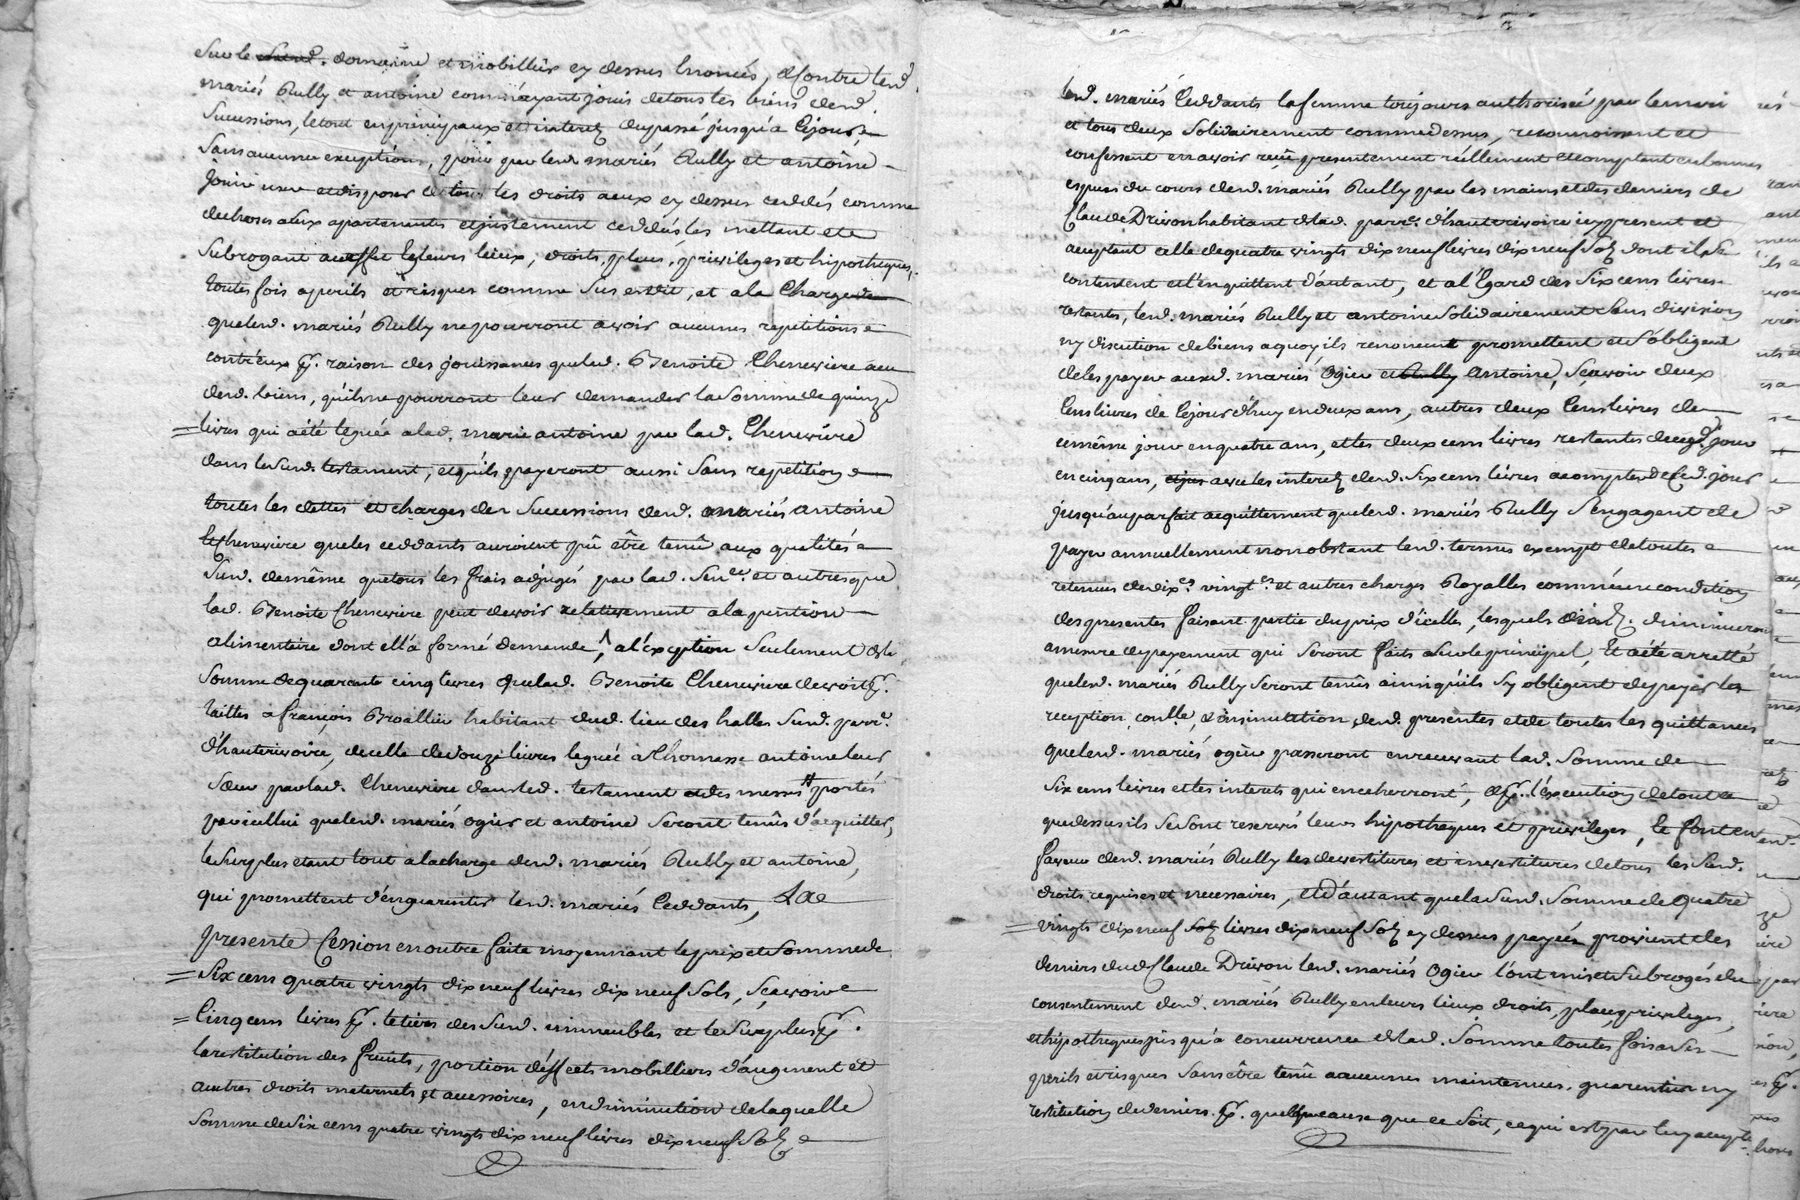 Sur le Susd. domaine et mobilliér cy dessus Enoncés, & Contre lesd.
mariés Rully et antoine comme ayant jouis de tous les biens desd.
Successions, le tout en principaux et interetz du passé jusqu'a Cejour,
Sans aucune exception, pour par lesd. mariés Rully et antoine
jouir user et disposer de tous les droits a eux cy dessus ceddés comme
de choses a Eux apartenantes et justement ceddées les mettant et
Subrogeant a cesffet En leurs lieux, droits, place, priwileges et hipotheques,
toutes fois a perils et risques comme Sus est dit, et a la Charge
que lesd. mariés Rully ne pourront avoir aucunes repetitions
contr'eux pr. raison des jouissances que lad. Benoite Chenewiere a eu
desd. biens, qu'ils ne pourront leur demander la Somme de quinze
livres qui a été leguée a lad. marie antoine par lad. Chenewiere
dans le Susd. testament, et qu'ils payeront aussi Sans repetition
toutes les dettes et charges des Successions desd. mariés antoine
Et Chenewiere que les ceddants auroient pû être tenû aux qualités
Susd. de même que tous les frais adjugés par lad. Sence. et autres que
lad. Benoite Chenewiere peut devoir relativement a la pention
alimentaire dont ell'a formé demande, a l'exception Seulement de la
Somme de quarante cinq livres que lad. Benoite Chenewiere devoit pr.
tailles a françois Broallier habitant dud. lieu des halles Susd. parre.
d'hauteriwoire, de celle de douze livres leguée a Thomasse antoine leur
Sœur par lad. Chenewiere dans led. testament et des messes portés
par icellui que lesd. mariés ogier et antoine Seront tenûs d'acquitter,
le Surplus etant tout a la charge desd. mariés Rully et antoine,
qui promettent d'en guarentir lesd. mariés Ceddants, La
presente Cession en outre faite moyennant le prix et Somme de
Six cens quatre vingts dix neuf livres dix neuf Sols, Sçawoir
Cinq cens livres pr. le tiers des Susd. immeubles et le Surplus pr.
la restitution des fruits, portion d'éffects mobilliers d'augment et
autres droits maternels et accessoires, en diminution de laquelle
Somme de Six cens quatre vingts dix neuf livres dix neuf Solz
lesd. mariés Ceddants la femme toujours authorisée par le mari
et tous deux Solidairement comme dessus, reconnoissent et
confessent en avoir reçû presentement réellement et comptant en bonnes
especes du cours desd. mariés Rully par les mains et des deniers de
Claude Driwon habitant de lad. parre. d'hauteriwoire icy present et
acceptant celle de quatre vingts dix neuf livres dix neuf Solz dont ils Se
contentent et l'en quittent d'autant, et a l'Egard des Six cens livres
restantes, lesd. mariés Rully et antoine Solidairement Sans diwision
ny discution de biens a quoy ils renoncent promettent et S'obligent
de les payer auxd. mariés Ogier et Rully antoine, Sçawoir deux
Cens livres de Cejourd'huy en deux ans, autres deux Cens livres de
ce même jour en quatre ans, et les deux cens livres restantes de ced. jour
en cinq ans, avec les interetz desd. Six cens livres a compter de Ced. jour
jusqu'au parfait acquittement que lesd. mariés Rully S'engagent de
payer annuellement nonobstant lesd. termes exempt de toutes
retenues de dixes. vingtes. et autres charges Royalles comme une condition
des presentes faisant partie du prix d'icelles, lesquels diminueront
a mesure du payement qui Seront faits Sur le principal, Et a été arretté
que lesd. mariés Rully Seront tenûs ainsi qu'ils S'y obligent de payer les
reception, conlle, & insinuation desd. presentes et de toutes les quittances
que lesd. mariés ogier passeront en recevant lad. Somme de
Six cens livres et les interets qui en echerront, & pr. l'execution de tout ce
que dessus ils Se sont reservé leurs hipotheques et priwileges, Se font en
faweur desd. mariés Rully les dewestitures et inwestitures de tous les Susd.
droits requises et necessaires, Et d'autant que la Susd. Somme de quatre
vingts dix neuf Solz livres dix neuf Solz cy dessus payée prowient des
deniers dud. Claude Driwon lesd. mariés Ogier l'ont mis et Subrogés du
consentement desd. mariés Rully en leurs lieux droits, place, priwileges,
et hipotheques jusqu'a concurrence de lad. Somme toutes fois a Ses
perils et risques Sans être tenû a aucunes maintenues, guarentie ny
restitution de deniers pr. quelque cause que ce Soit, ce qui est par luy accepté